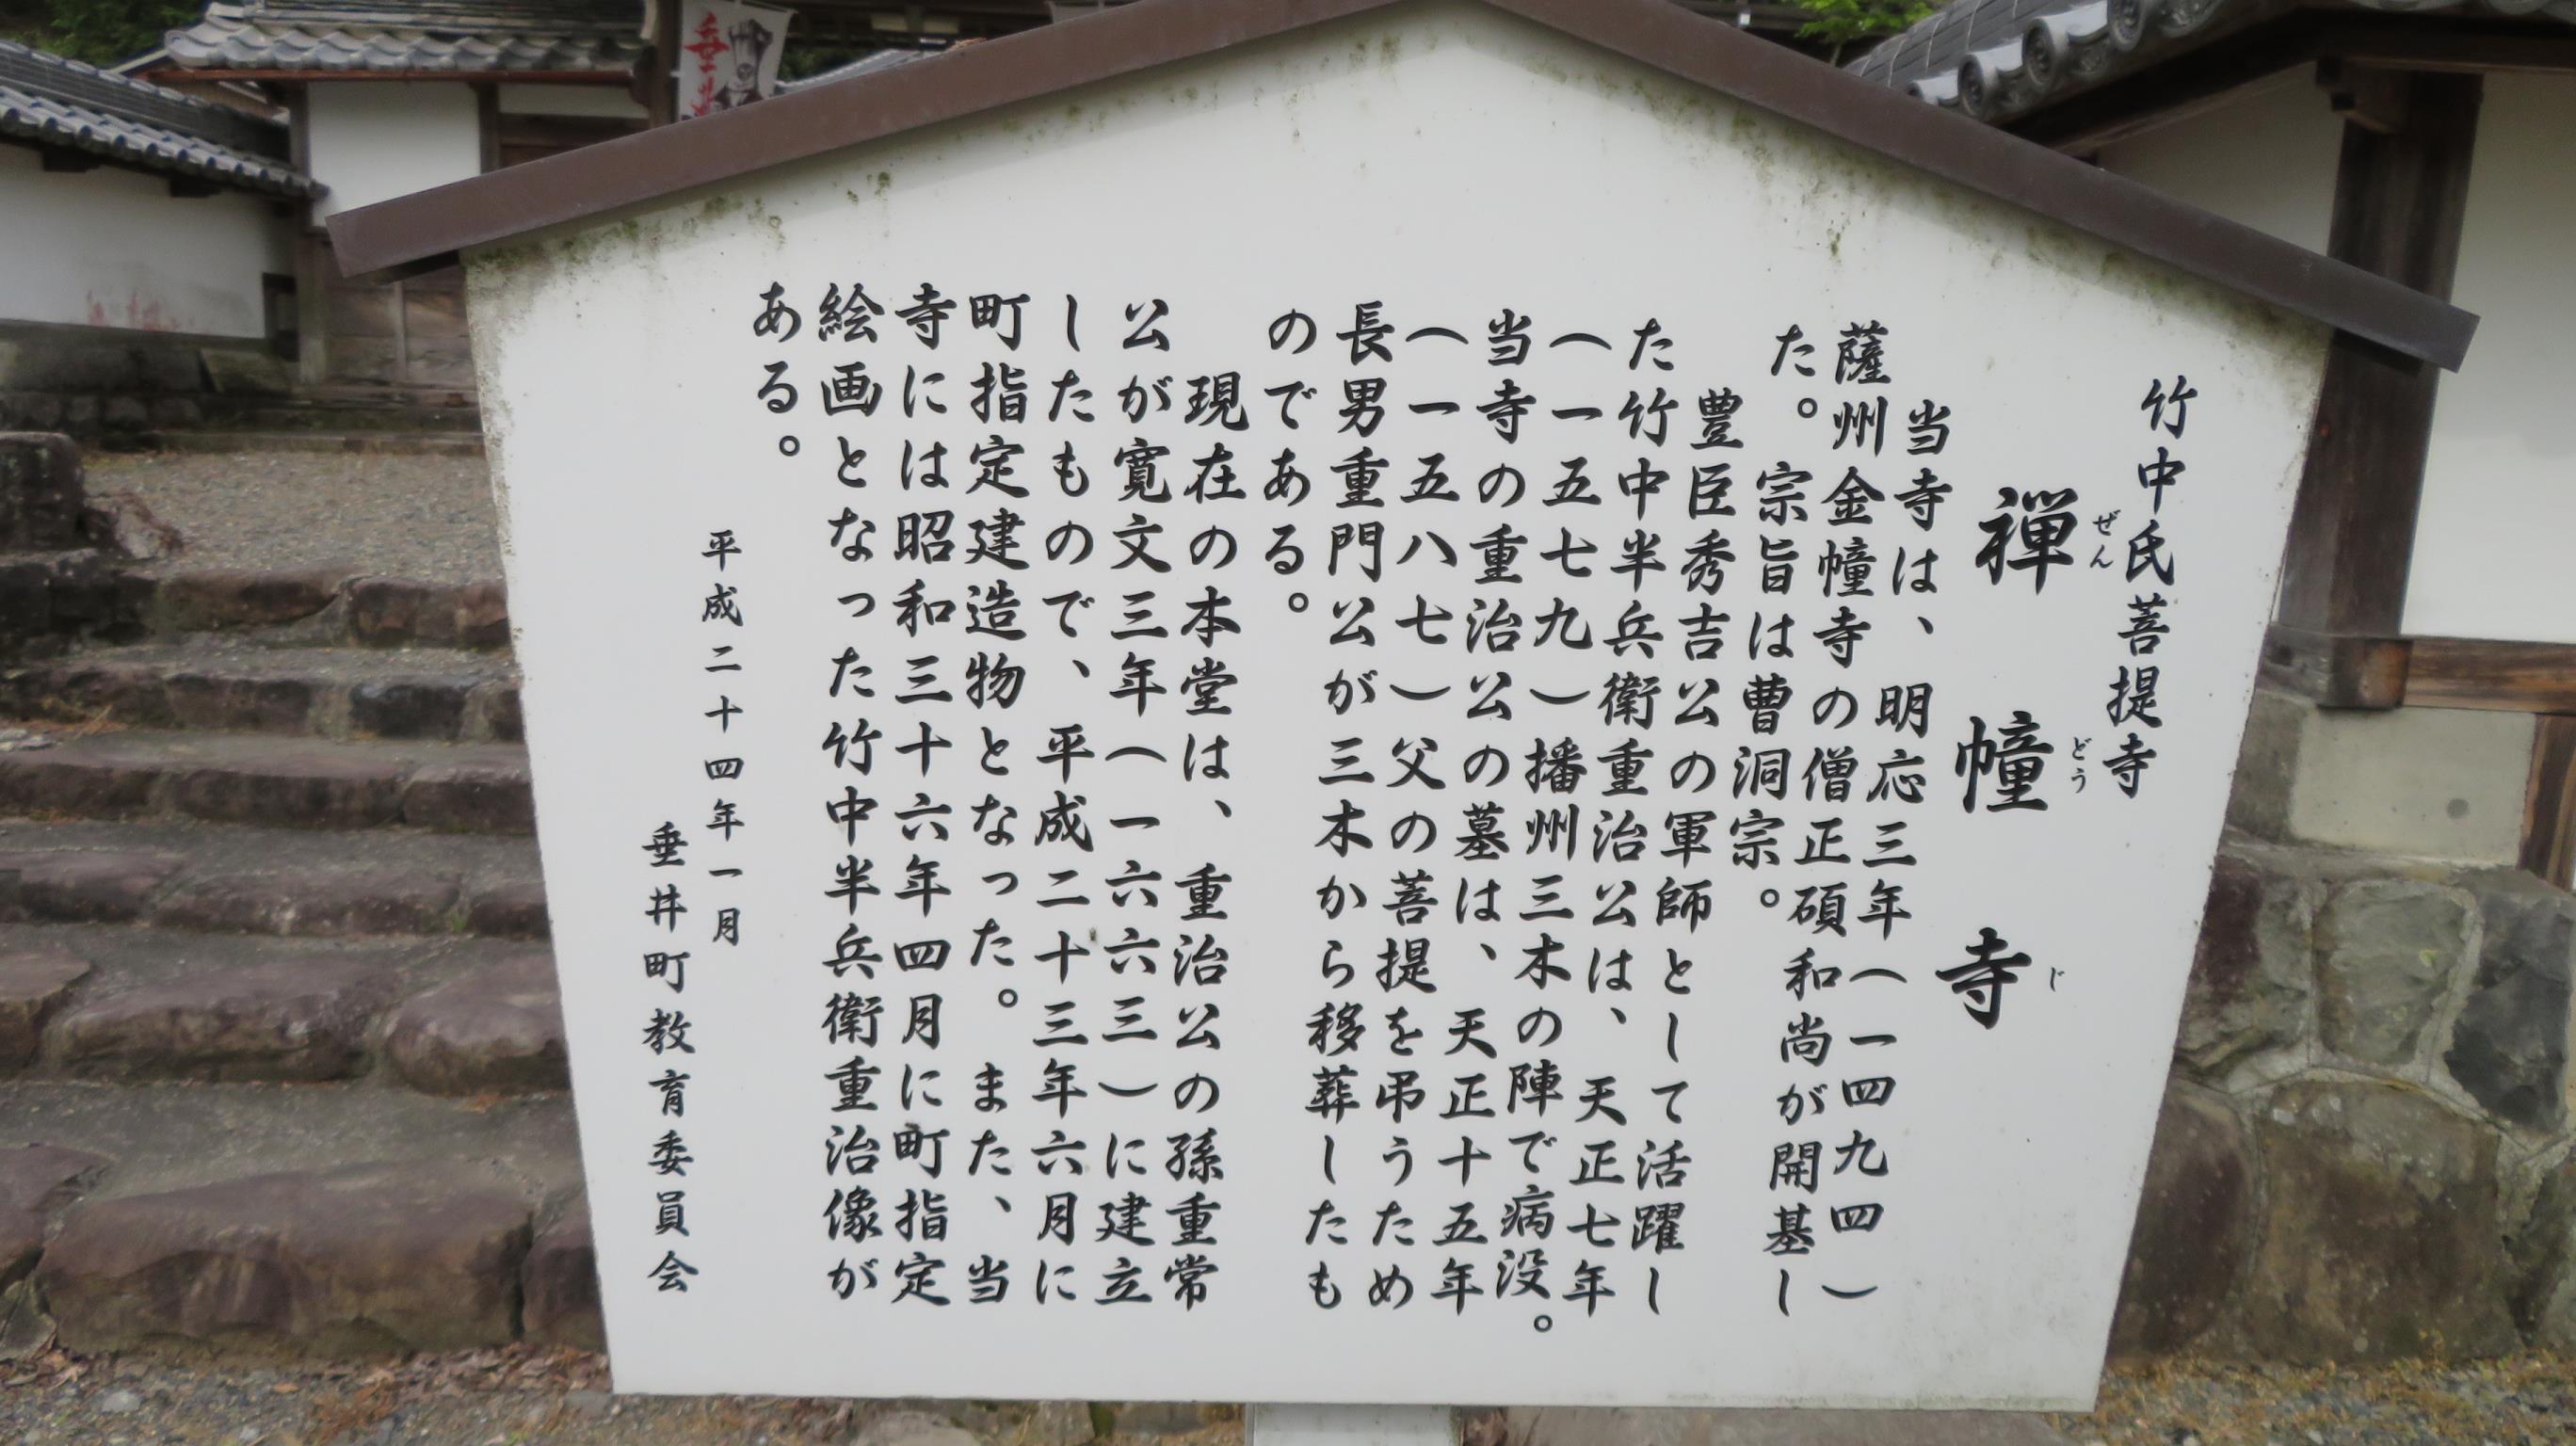 竹中氏菩提寺
禅幢寺
ぜんどうじ
当寺は、明応三年(一四九四)
薩州金幢寺の僧正碩和尚が開基し
た。宗旨は曹洞宗。
豊臣秀吉公の軍師として活躍し
た竹中半兵衛重治公は、天正七年
(一五七九)播州三木の陣で病没。
当寺の重治公の墓は、天正十五年
(一五八七)父の菩提を弔うため
長男重門公が三木から移葬したも
のである。
現在の本堂は、重治公の孫重常
公が寛文三年(一六六三)に建立
したもので、平成二十三年六月に
町指定建造物となった。また、当
寺には昭和三十六年四月に町指定
絵画となった竹中半兵衛重治像が
ある。
平成二十四年一月
垂井町教育委員会
垂井